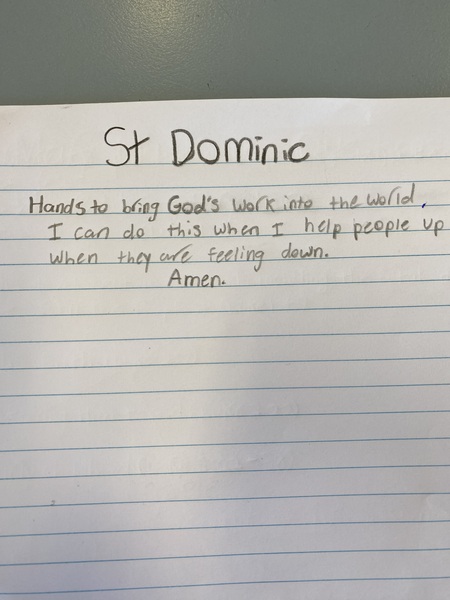 St Dominic
Hands to bring God's work into the world.
I can do this when I help people up
when they are feeling down.
Amen.